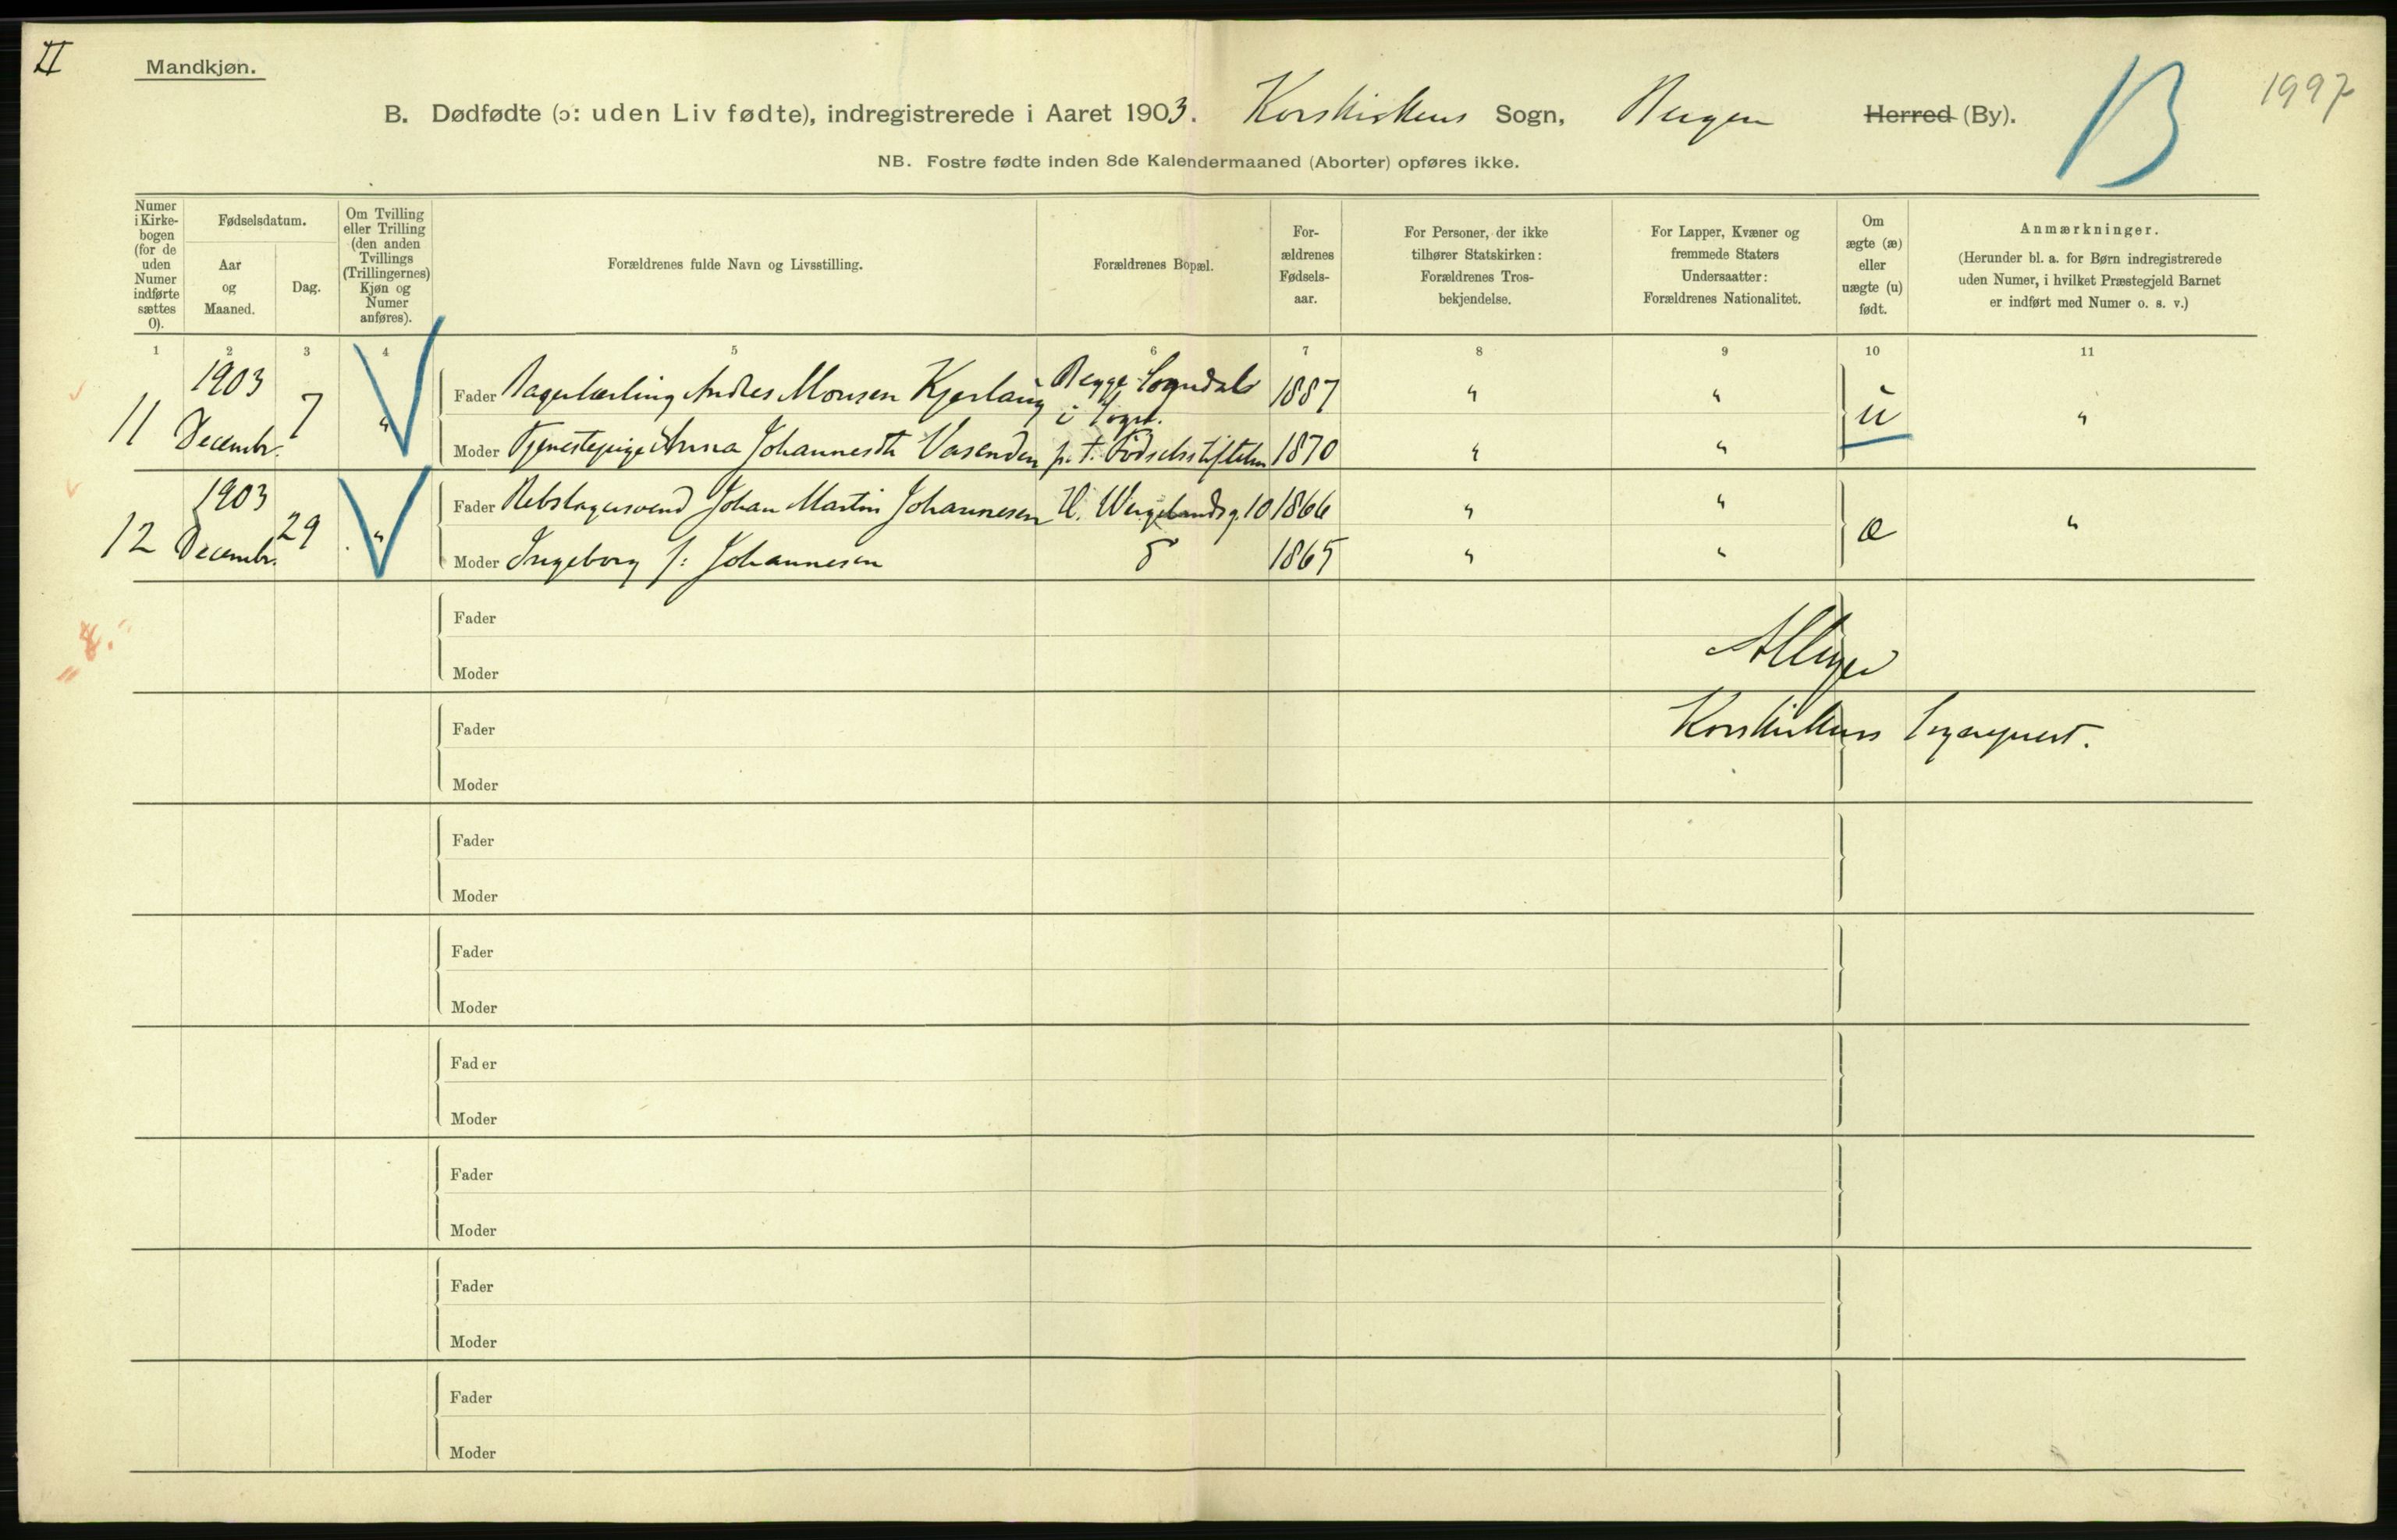 II
Mandkjøn.
1997
B
B. Dødfødte (ɔ: uden Liv fødte), indregistrerede i Aaret 1903. Korskirkens Sogn, Bergen Herred (By).
NB. Fostre fødte inden 8de Kalendermaaned (Aborter) opføres ikke.
Numer i Kirke-bogen (for de uden Numer indførte sættes 0).
Fødselsdatum.
Aar og Maaned.
Dag.
Om Tvilling eller Trilling (den anden Tvillings (Trillingernes) Kjøn og Numer anføres).
Forældrenes fulde Navn og Livsstilling.
Forældrenes Bopæl.
For-ældrenes Fødsels-aar.
For Personer, der ikke tilhører Statskirken: Forældrenes Tros-bekjendelse.
For Lapper, Kvæner og fremmede Staters Undersaatter: Forældrenes Nationalitet.
Om ægte (æ) eller uægte (u) født.
Anmærkninger.
(Herunder bl. a. for Børn indregistrerede uden Numer, i hvilket Præstegjeld Barnet er indført med Numer o. s. v.)
1 2 3 4 5 6 7 8 9 10 11
11 1903 Decembr. 7 " Fader Bagerlærling Andres Monsen Kjerlaug Begge Sogndal i Sogn. 1887 " " u "
Moder Tjenestepige Anna Johannesdtr Vasenden p. t. Fødselsstiftelsen 1870 " "
12 1903 Decembr. 29 " Fader Rebslagersvend Johan Martin Johannesen H. Wergelandsg. 10 1866 " " æ "
Moder Ingeborg f: Johannesen 1865 " "
8.
Fader
Moder
Korskirkens Sogneprest.
Fader
Moder
Fader
Moder
Fader
Moder
Fader
Moder
Fader
Moder
Fader
Moder
Fader
Moder